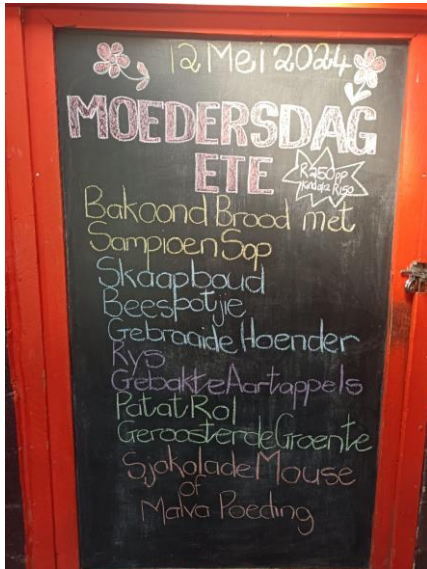 12 Mei 2024
MOEDERSDAG
ETE
R350pp
Bakoond Brood met
Sampioen Sop
Skaapboud
Beespotjie
Gebraaide Hoender
Rys
Gebakte Aartappels
Patat Rol
Geroosterde Groente
Sjokolade Mouse
of
Malva Poeding